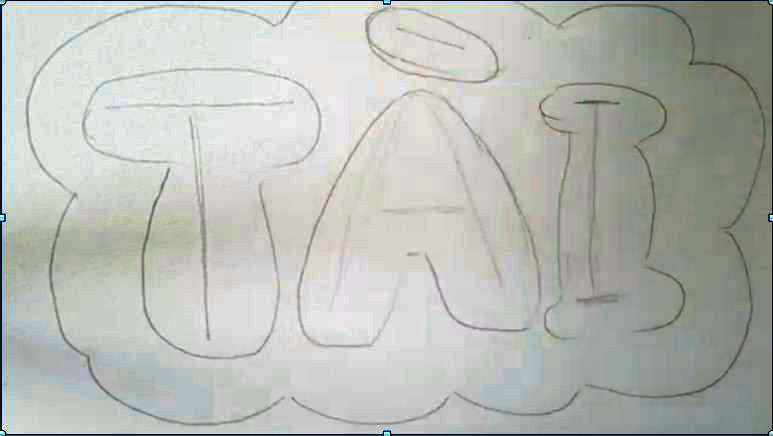 TÀI